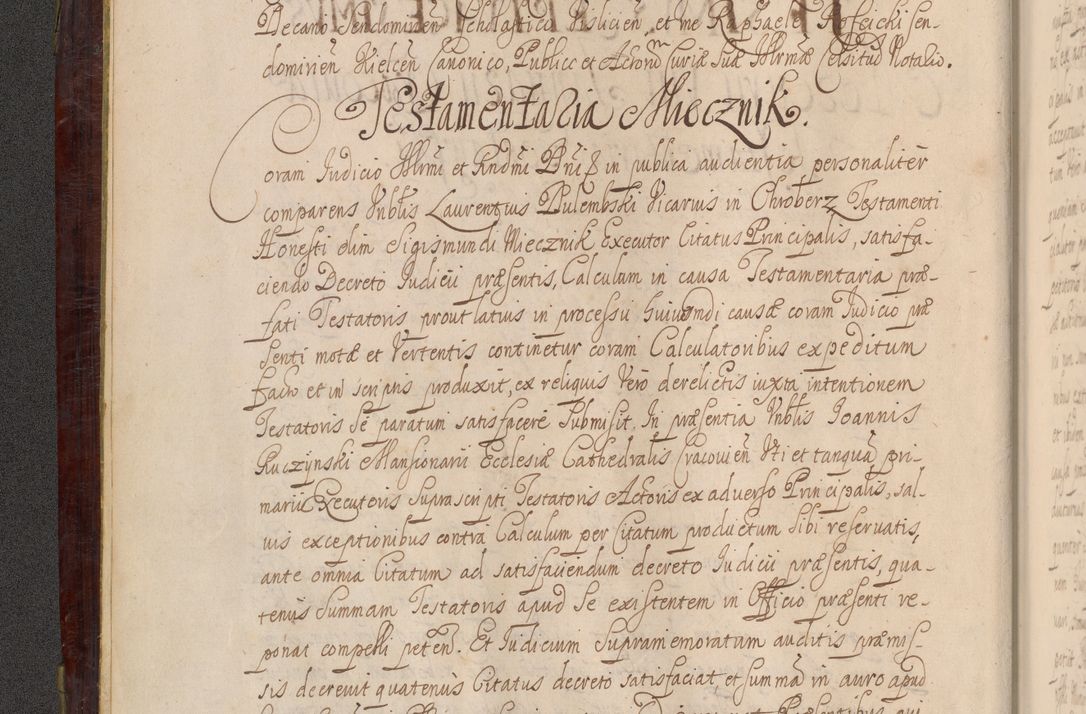 Decano Sendomirien Scholastico Vislicien, et me Raphaele Hoscicki Sen-
domirien Kielcen Canonico, Publico et Actorum Curiæ Suæ Illrmæ Celsitud Notario.
Testamentaria Miecznik.
Coram Judicio Illrmi et Rndmi Dni Eppi in publica audientia personaliter
comparens Vnblis Laurentius Dulembski Vicarius in Chroberz Testamenti
Honesti olim Sigismundi Miecznik Executor Citatus Principalis, satisfa-
ciendo Decreto Judicii præsentis, Calculum in causa Testamentaria præ-
fati Testatoris prout latius in processu huiusmodi causæ coram Judicio præ
senti motæ et Vertentis continetur coram Calculatoribus expeditum
facto et in scriptis produxit, ex reliquis Vero derelictis iuxta intentionem
Testatoris Se paratum satisfacere Submisit, In præsentia Vnblis Joannis
Ruczynski Mansionarii Ecclesiæ Cathedralis Cracovien Vti et tanquam pri-
marii Execcutoris Suprascripti Testatoris Actoris ex adverso Principalis, sal-
uis exceptionibus contra Calculum per Citatum productum Sibi reservatis,
ante omnia Citatum ad satisfaciendum decreto Judicii præsentis, qua-
tenus Summam Testatoris apud Se existentem in Officio præsenti re-
ponat compelli peten. Et Judicium Supramemoratum auditis præmis-
sis decrevit quatenus Citatus decreto satisfaciat et summa in auro apud